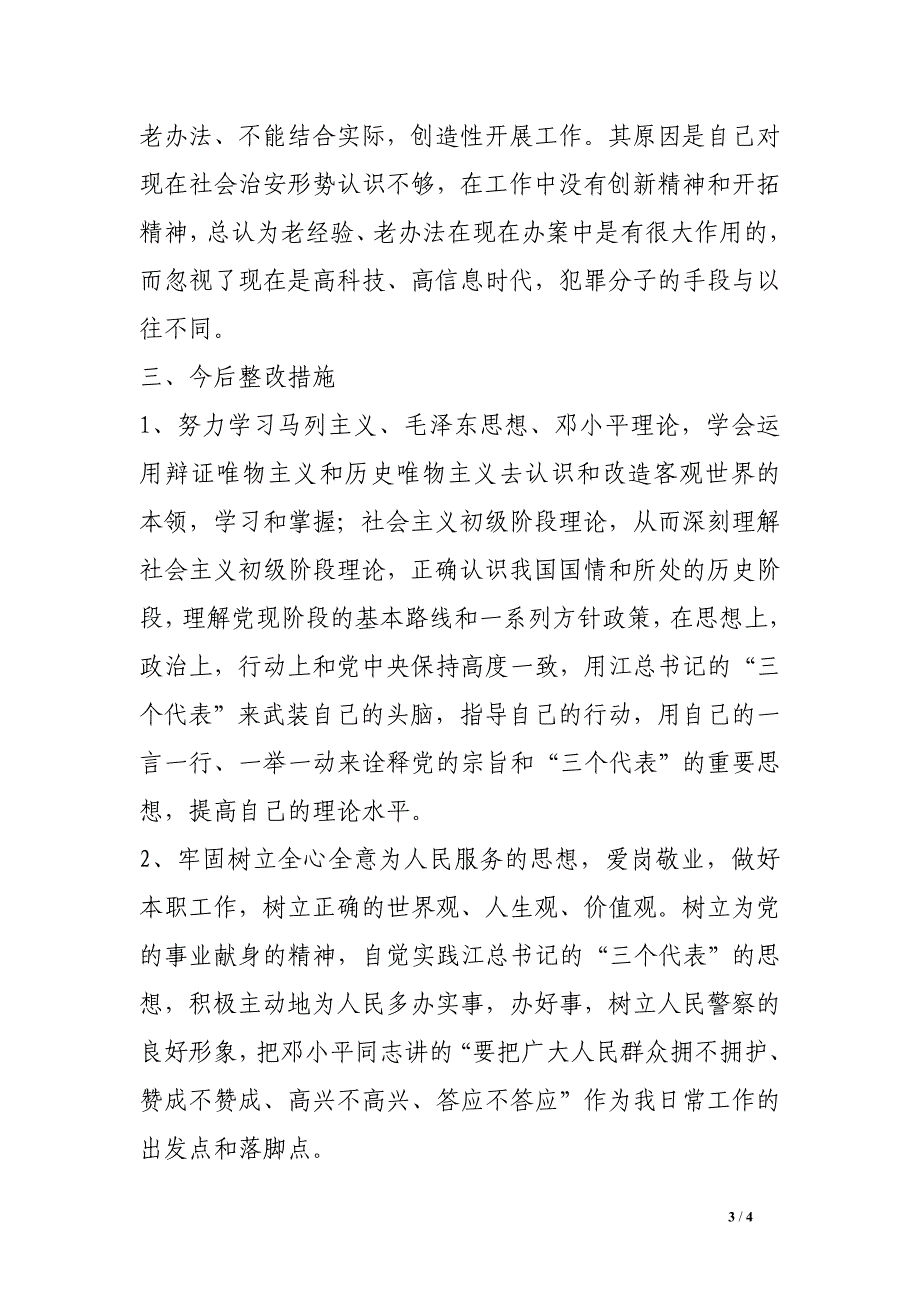 老办法、不能结合实际，创造性开展工作。其原因是自己对
现在社会治安形势认识不够，在工作中没有创新精神和开拓
精神，总认为老经验、老办法在现在办案中是有很大作用的，
而忽视了现在是高科技、高信息时代，犯罪分子的手段与以
往不同。
三、今后整改措施
1、努力学习马列主义、毛泽东思想、邓小平理论，学会运
用辩证唯物主义和历史唯物主义去认识和改造客观世界的
本领，学习和掌握；社会主义初级阶段理论，从而深刻理解
社会主义初级阶段理论，正确认识我国国情和所处的历史阶
段，理解党现阶段的基本路线和一系列方针政策，在思想上，
政治上，行动上和党中央保持高度一致，用江总书记的“三
个代表”来武装自己的头脑，指导自己的行动，用自己的一
言一行、一举一动来诠释党的宗旨和“三个代表”的重要思
想，提高自己的理论水平。
2、牢固树立全心全意为人民服务的思想，爱岗敬业，做好
本职工作，树立正确的世界观、人生观、价值观。树立为党
的事业献身的精神，自觉实践江总书记的“三个代表”的思
想，积极主动地为人民多办实事，办好事，树立人民警察的
良好形象，把邓小平同志讲的“要把广大人民群众拥不拥护、
赞成不赞成、高兴不高兴、答应不答应”作为我日常工作的
出发点和落脚点。
3 / 4